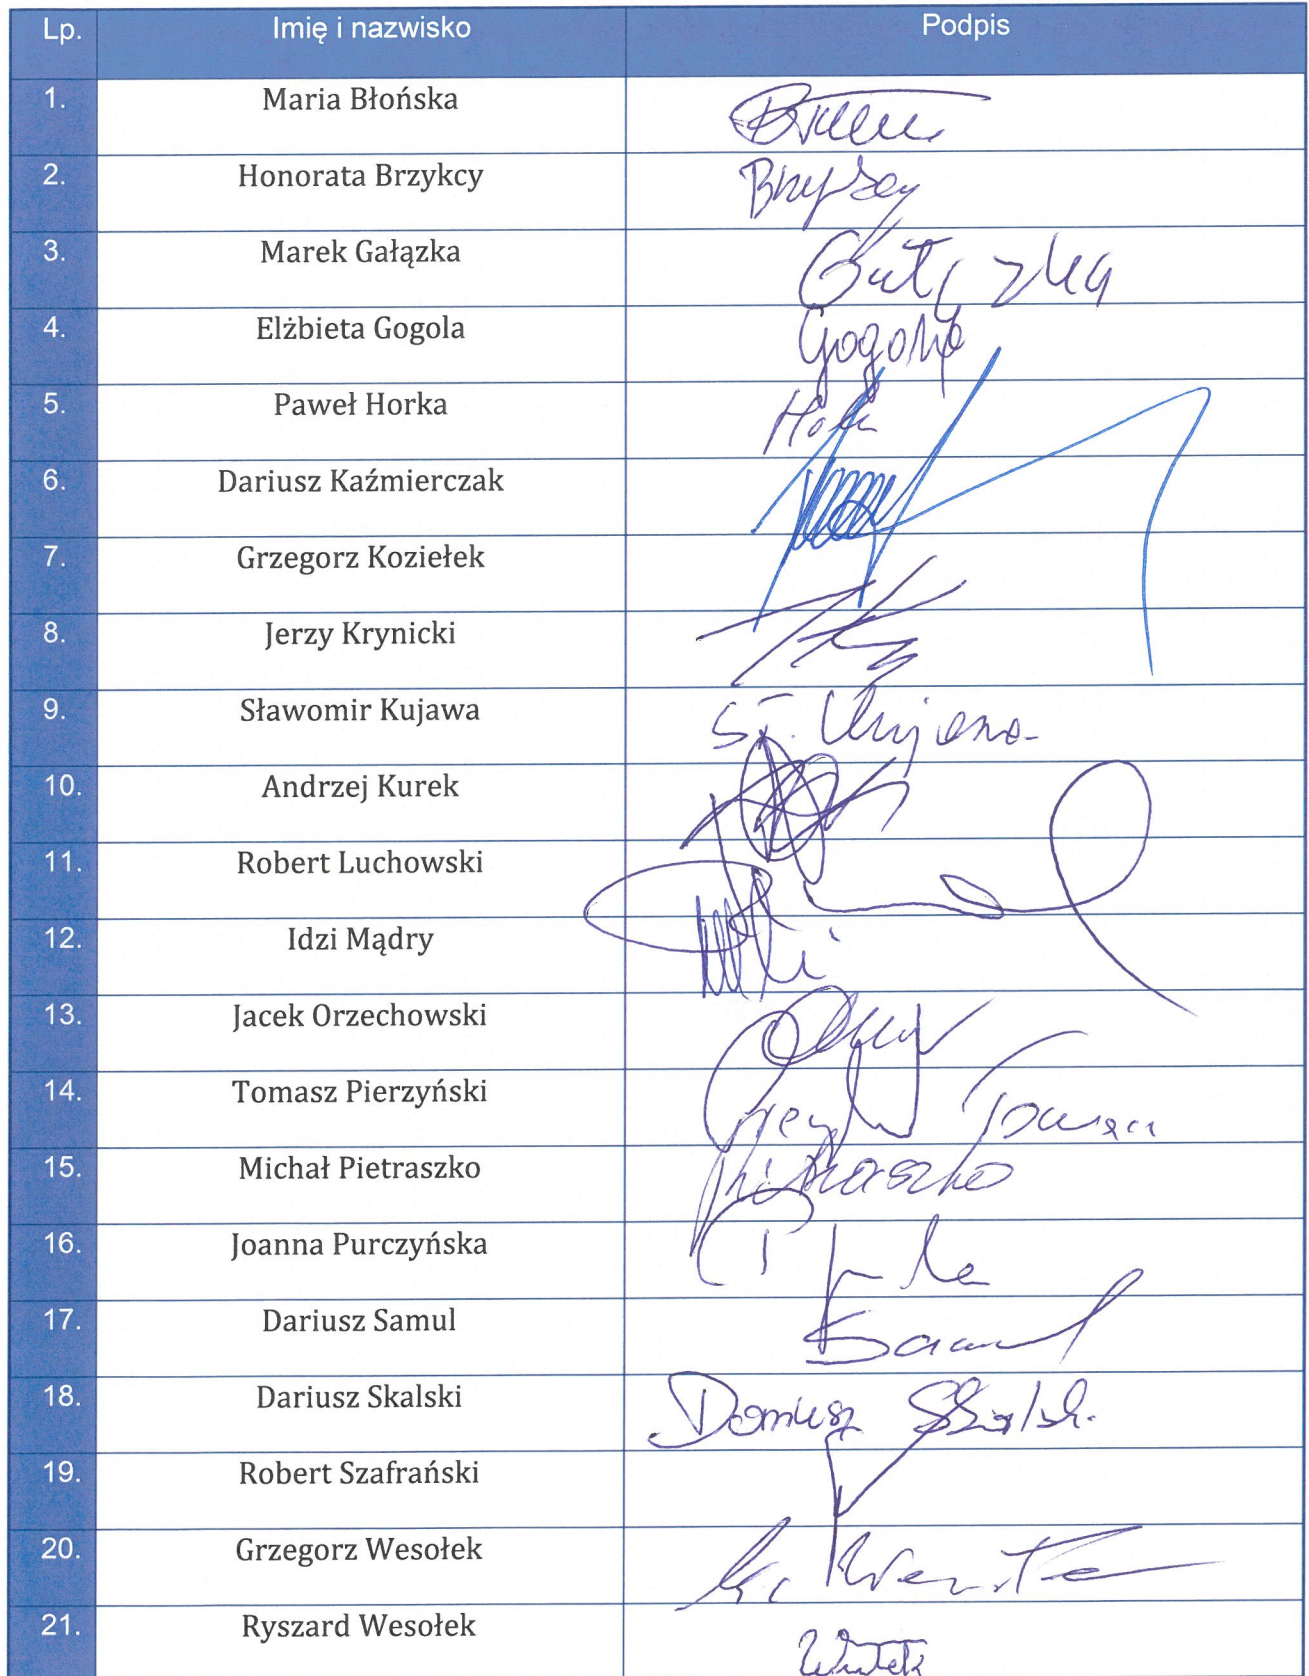 Lp. Imię i nazwisko Podpis
1. Maria Błońska
2. Honorata Brzykcy Brzykcy
3. Marek Gałązka Gałązka
4. Elżbieta Gogola Gogola
5. Paweł Horka
6. Dariusz Kaźmierczak
7. Grzegorz Koziełek
8. Jerzy Krynicki
9. Sławomir Kujawa Sł. Kujawa
10. Andrzej Kurek
11. Robert Luchowski
12. Idzi Mądry
13. Jacek Orzechowski
14. Tomasz Pierzyński
15. Michał Pietraszko Pietraszko
16. Joanna Purczyńska
17. Dariusz Samul Samul
18. Dariusz Skalski Dariusz Skalski
19. Robert Szafrański
20. Grzegorz Wesołek
21. Ryszard Wesołek